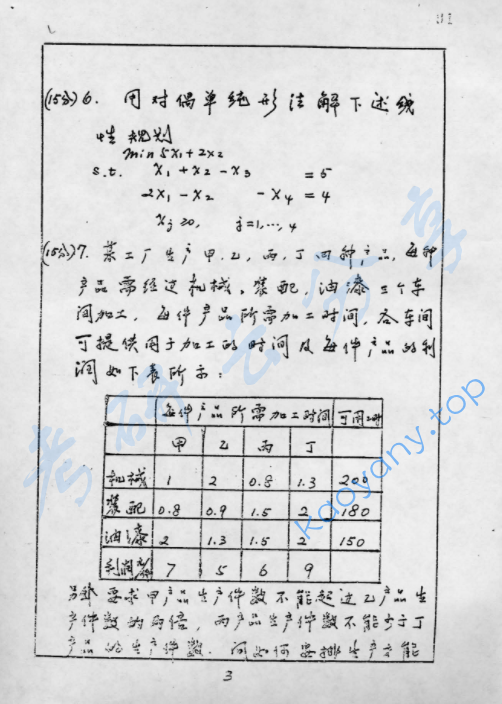 (15分) 6. 用对偶单纯形法解下述线
性规划
min 5x₁+2x₂
s.t. x₁+x₂-x₃ =5
2x₁-x₂ -x₄=4
xⱼ≥0, j=1,…,4
(15分) 7. 某工厂生产甲、乙、丙、丁四种产品,每种
产品需经过机械、装配、油漆三个车
间加工,每件产品所需加工时间,各车间
可提供用于加工的时间及每件产品的利
润如下表所示:
每件产品所需加工时间 可用工时
甲 乙 丙 丁
机械 1 2 0.8 1.3 200
装配 0.8 0.9 1.5 2 180
油漆 2 1.3 1.5 2 150
利润 7 5 6 9
另外要求甲产品生产件数不能超过乙产品生
产件数的两倍,丙产品生产件数不能少于丁
产品的生产件数.问如何安排生产才能
3
kaoyany.top